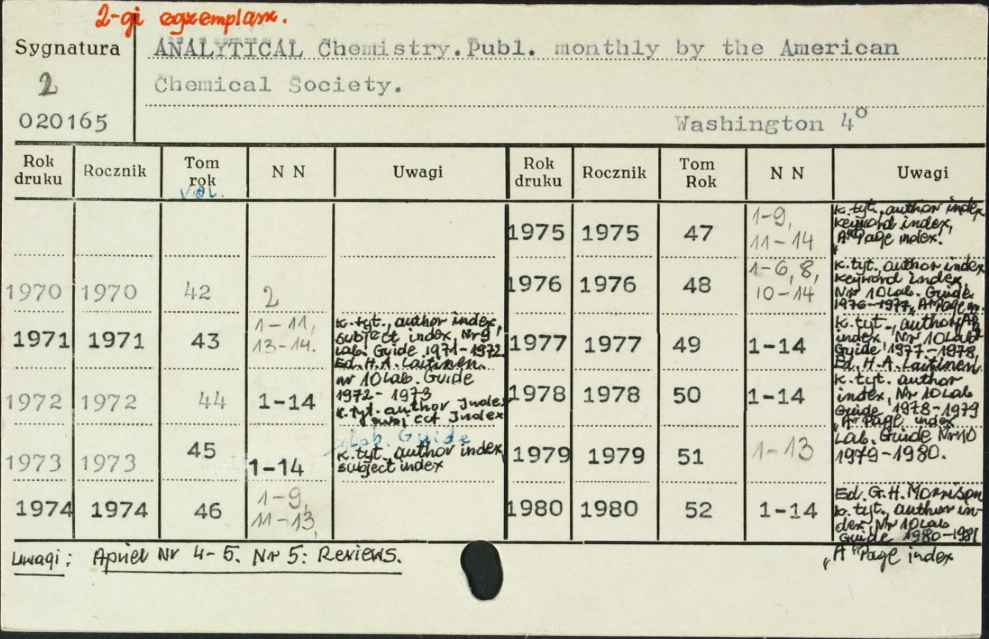 2-gi egzemplarz.
Sygnatura
ANALYTICAL Chemistry. Publ. monthly by the American
2
Chemical Society.
020165
Washington 4°
Rok druku Rocznik Tom rok N N Uwagi Rok druku Rocznik Tom Rok N N Uwagi
vol.
1970 1970 42 2
1971 1971 43 1-11, 13-14.
k. tyt., author index,
subject index, Nr 9
Lab. Guide 1971-1972
Ed. H.A. Laitinen.
1972 1972 44 1-14
nr 10 Lab. Guide
1972-1973
k. tyt. author Index
subject Index
1973 1973 45 1-14
Lab. Guide
k. tyt. author index,
subject index
1974 1974 46 1-9, 11-13,
1975 1975 47 1-9, 11-14
k. tyt., author index,
keyword index,
"A" Page index.
1976 1976 48 1-6, 8, 10-14
k. tyt., author index
keyword index,
Nr 10 Lab. Guide
1976-1977,
1977 1977 49 1-14
k. tyt., author
index, Nr 10 Lab
Guide 1977-1978,
Ed. H.A. Laitinen.
1978 1978 50 1-14
k. tyt. author
index, Nr 10 Lab
Guide 1978-1979
"A" Page index
1979 1979 51 1-13
Lab. Guide Nr 10
1979-1980.
1980 1980 52 1-14
Ed. G.H. Morrison
k. tyt., author in-
dex, Nr 10 Lab
Guide 1980-1981
"A" Page index
Uwagi: Apriel Nr 4-5. Nr 5: Reviews.